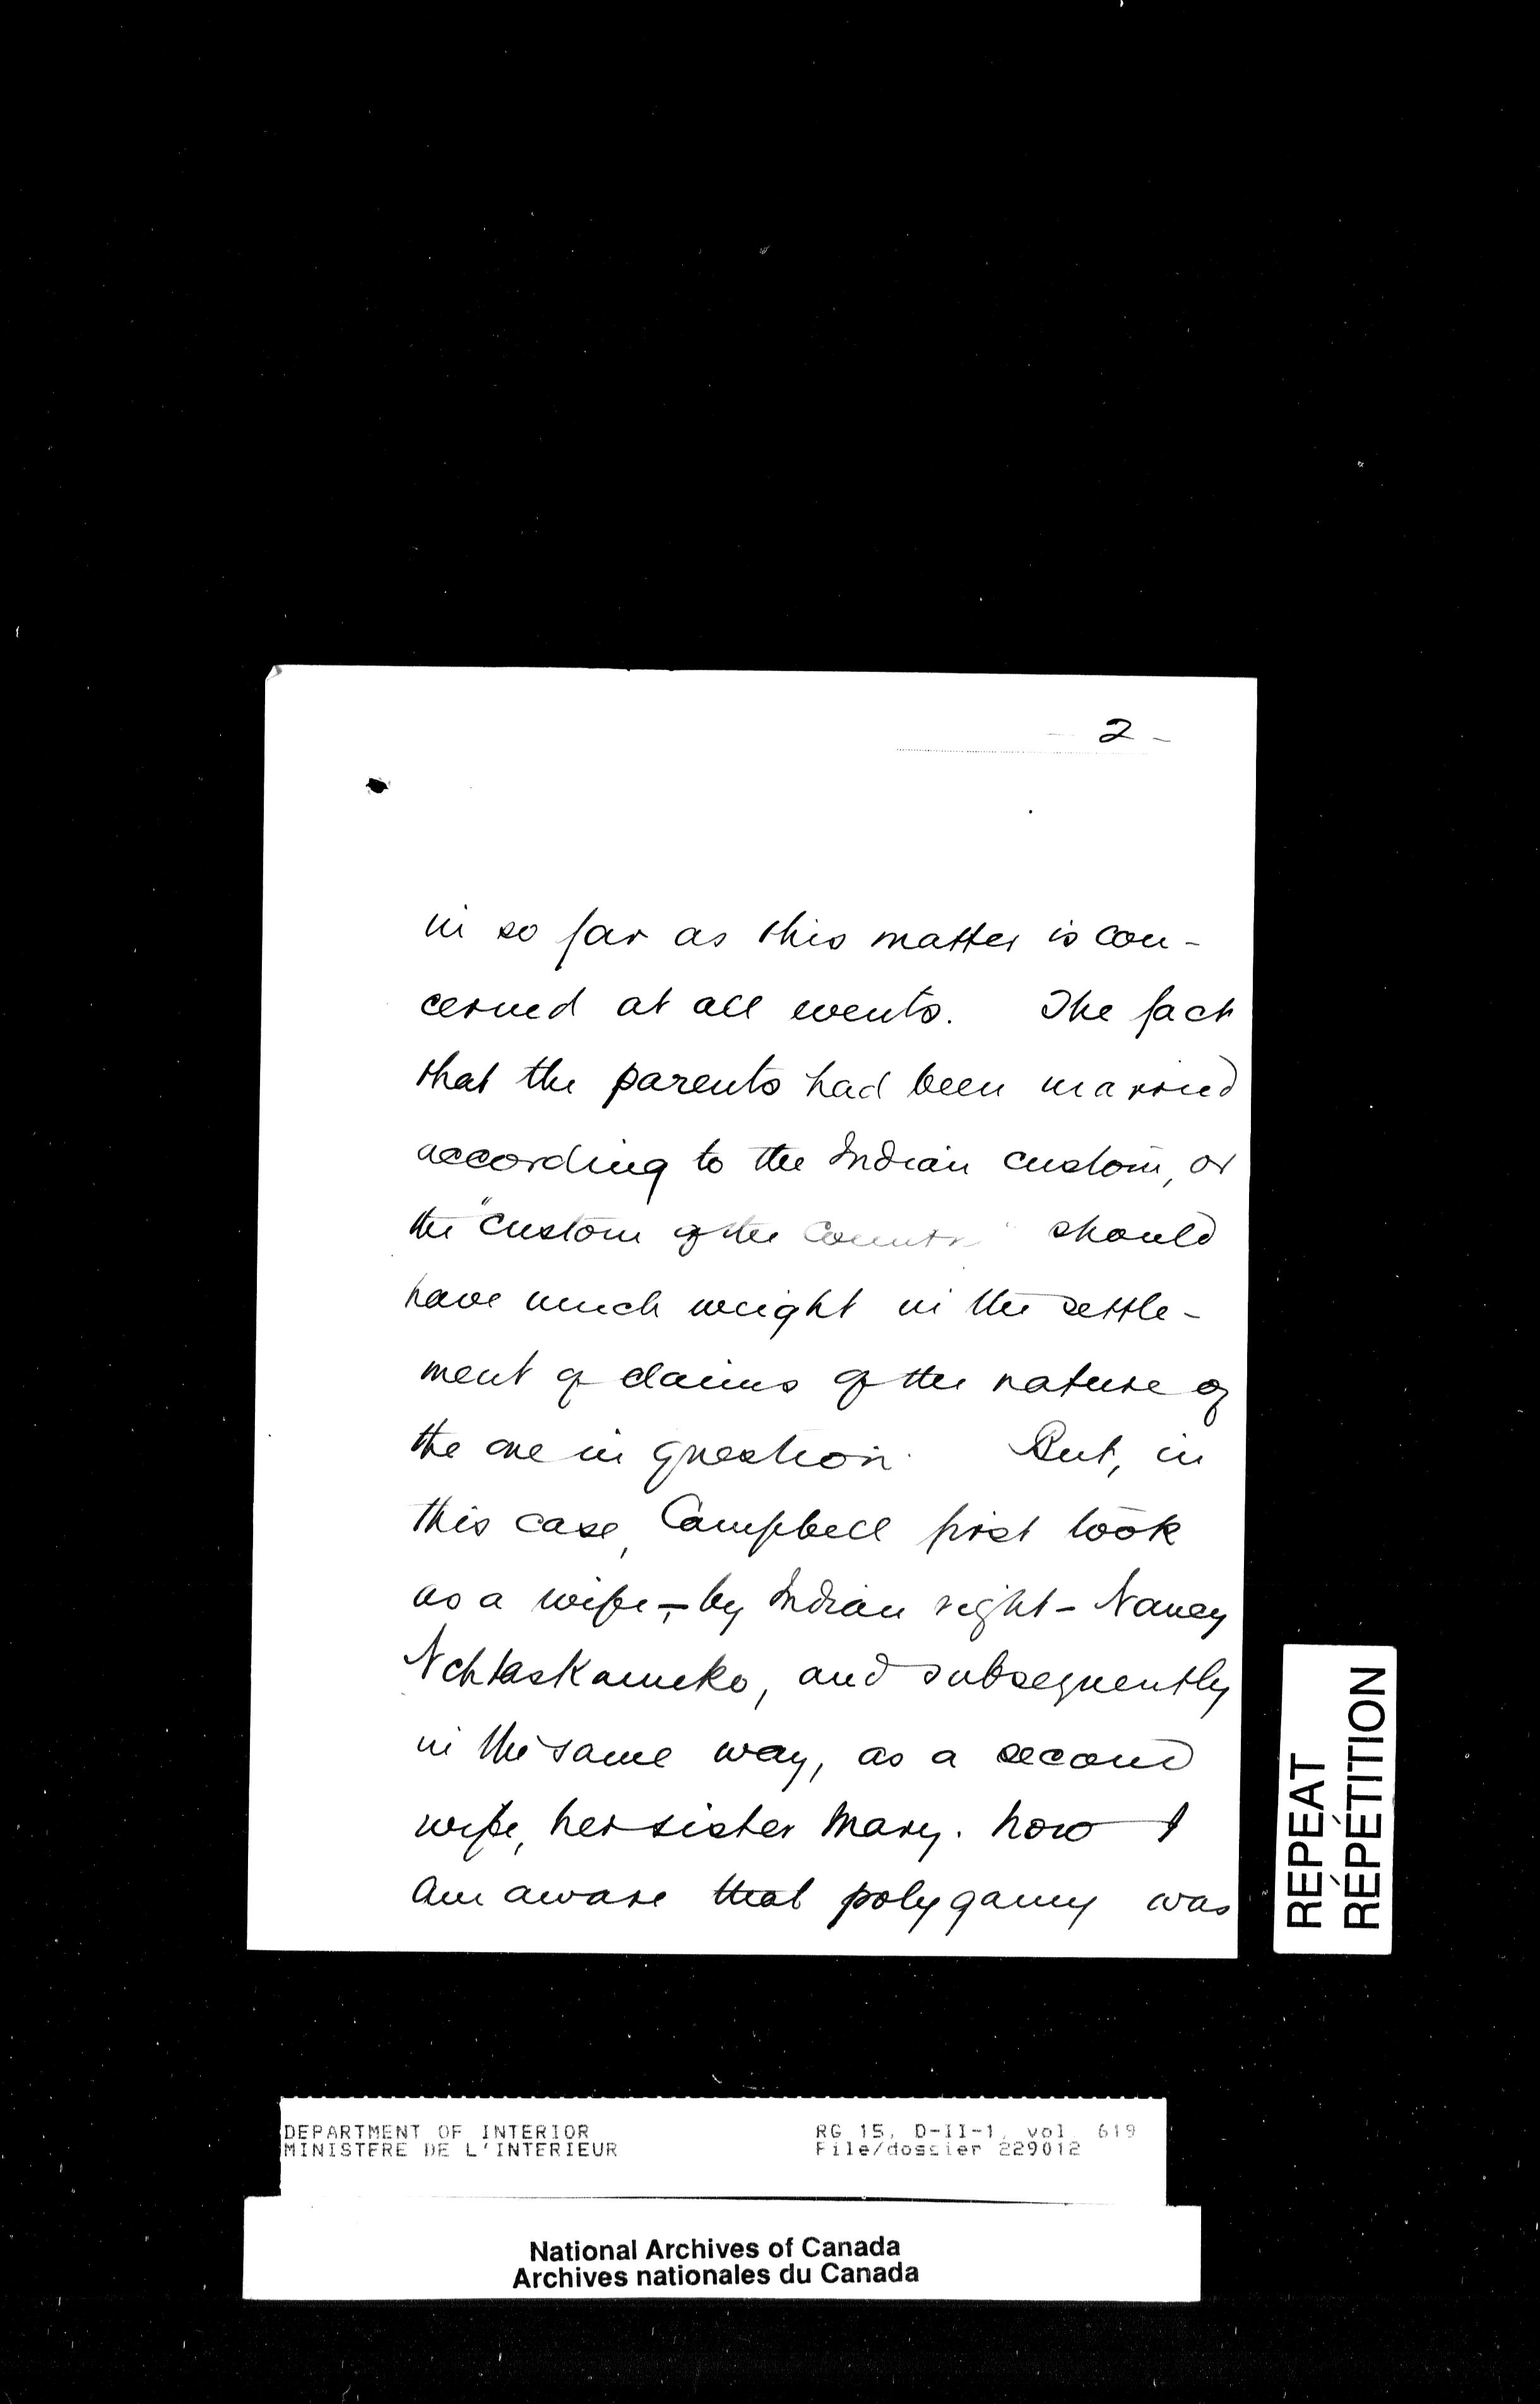 - 2 -
in so far as this matter is con-
cerned at all events. The fact
that the parents had been married
according to the Indian custom, or
the "custom of the Country" should
have much weight in the settle-
ment of claims of the nature of
the one in question. But, in
this case, Campbell first took
as a wife, - by Indian right - Nancy
and subsequently
in the same way, as a second
wife, her sister Mary. Now I
am aware that polygamy was
REPEAT
RÉPÉTITION
DEPARTMENT OF INTERIOR RG 15, D-II-1, vol. 619
MINISTERE DE L'INTERIEUR File/dossier 229012
National Archives of Canada
Archives nationales du Canada